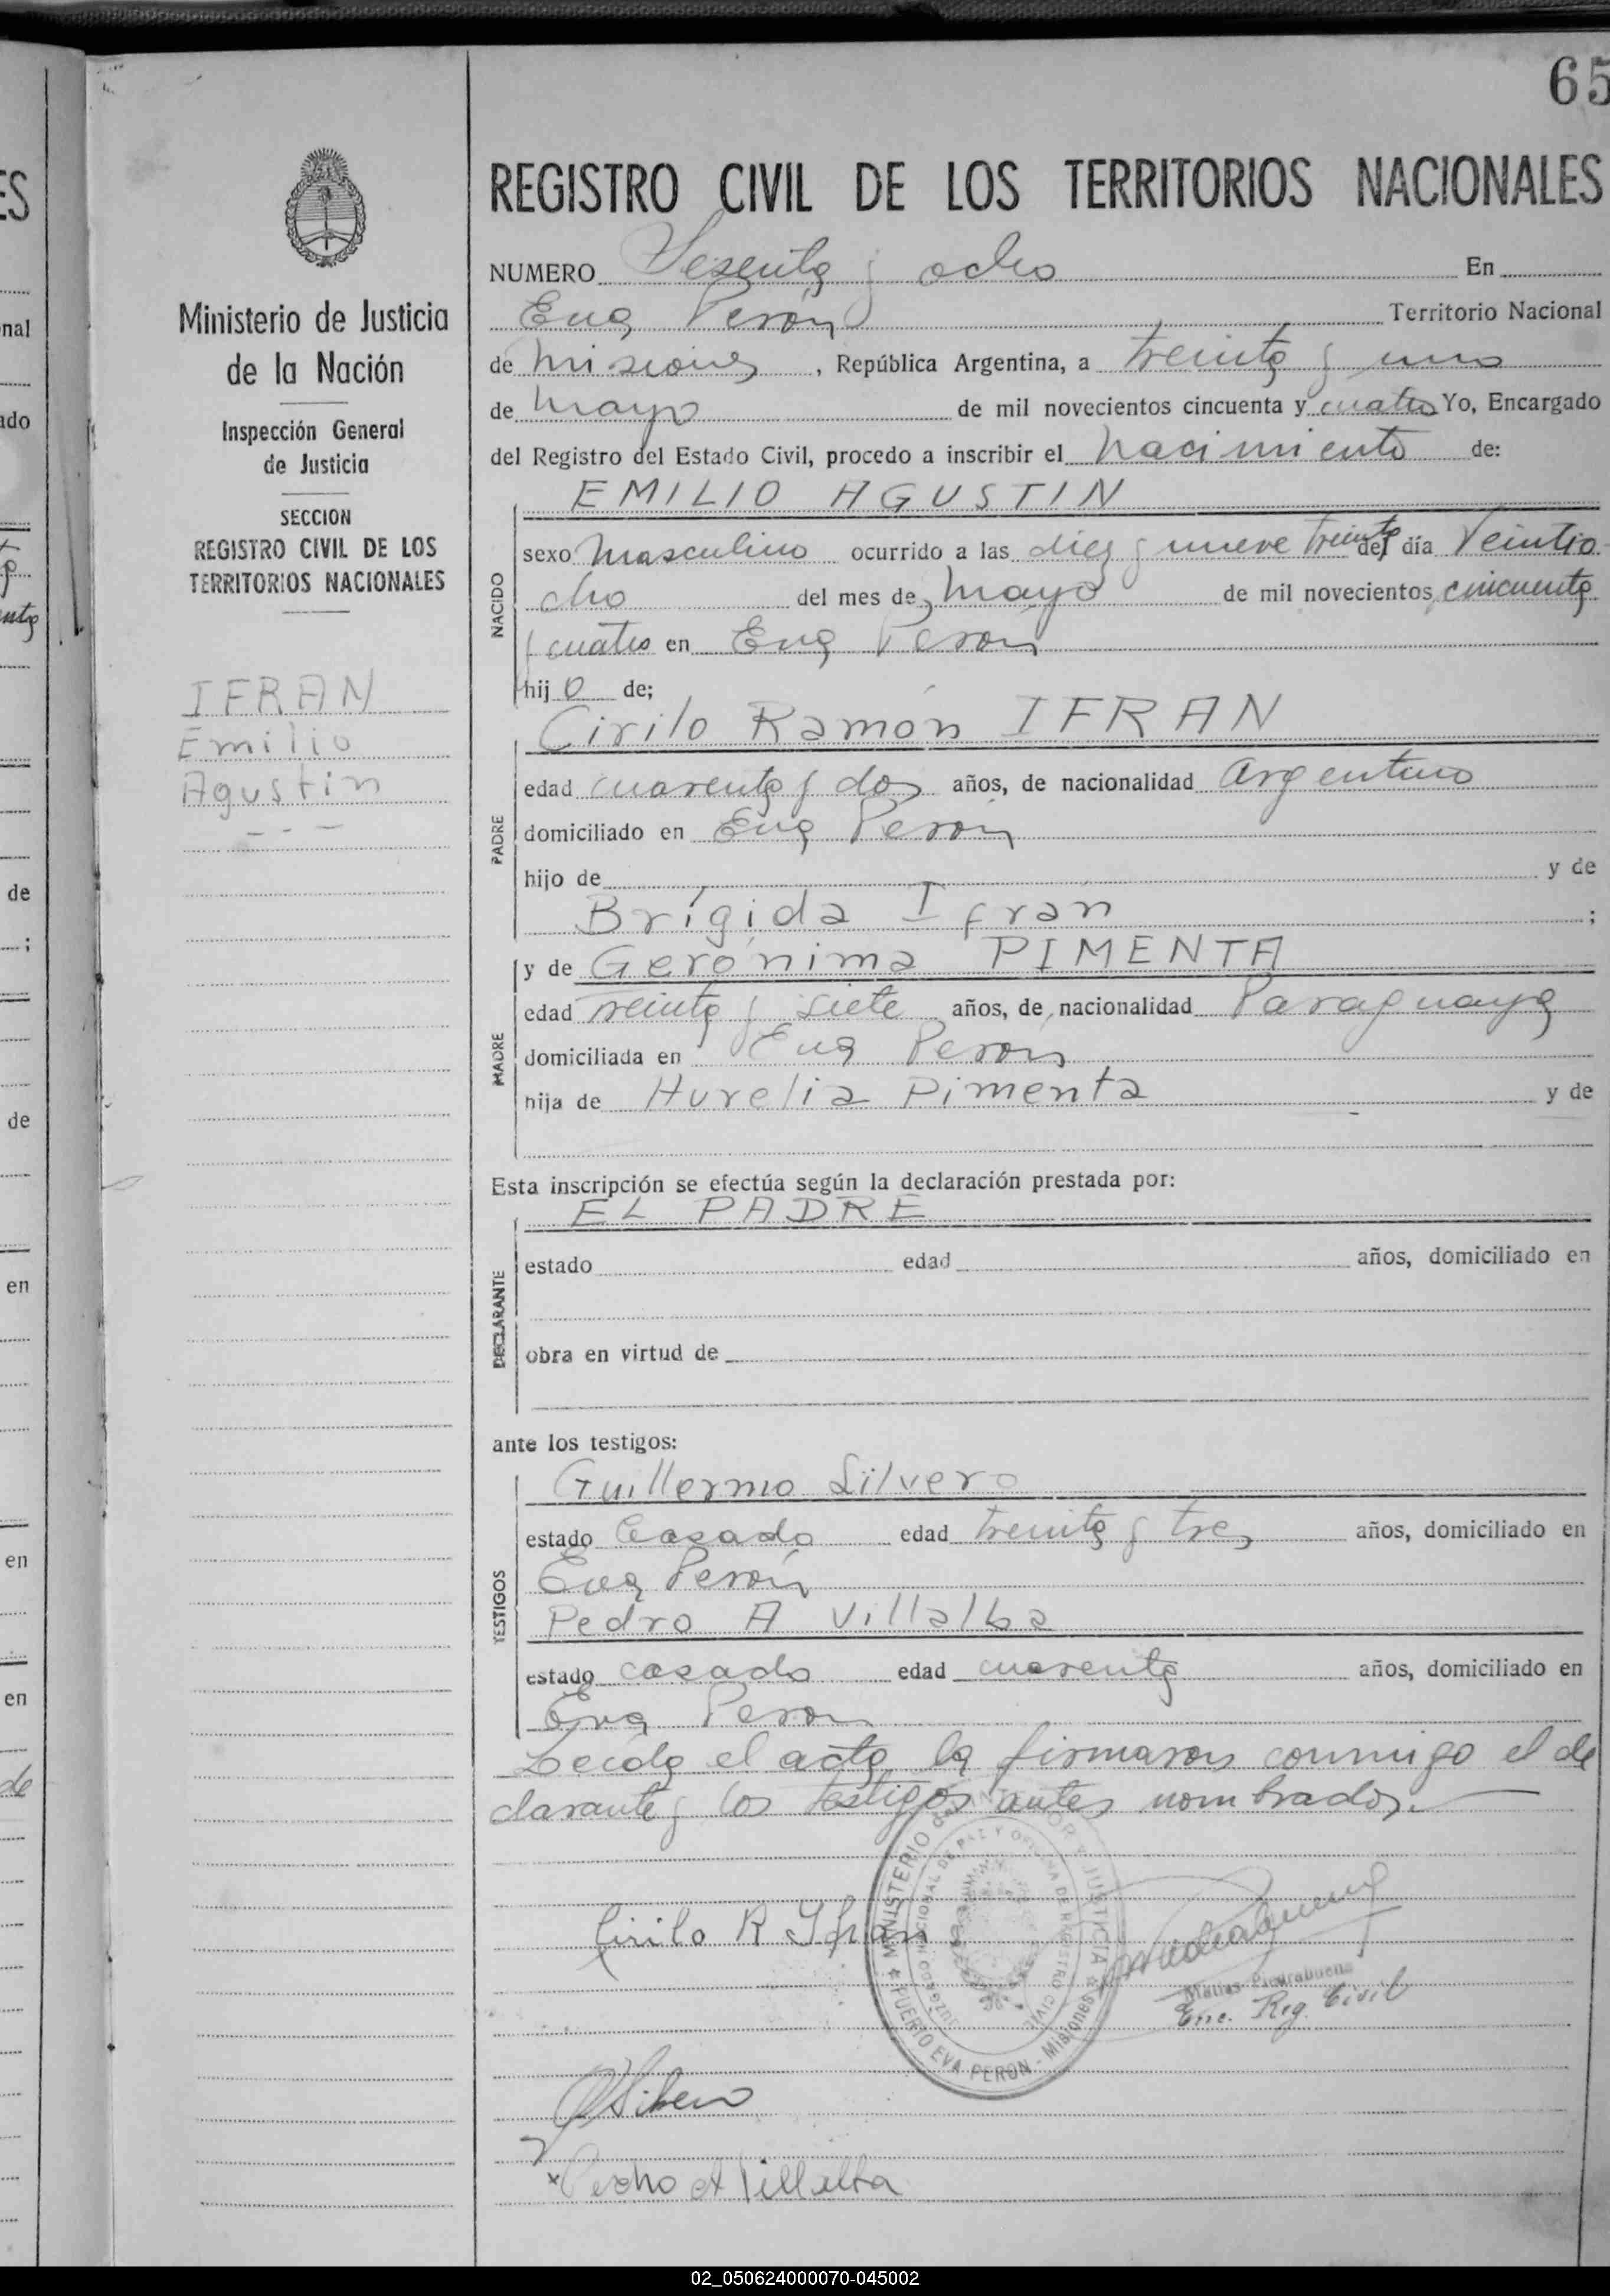 65
REGISTRO CIVIL DE LOS TERRITORIOS NACIONALES
NUMERO Sesenta y ocho En
Eva Perón Territorio Nacional
de Misiones, República Argentina, a treinta y uno
de Mayo de mil novecientos cincuenta y cuatro Yo, Encargado
del Registro del Estado Civil, procedo a inscribir el Nacimiento de:
Ministerio de Justicia
de la Nación
Inspección General
de Justicia
SECCION
REGISTRO CIVIL DE LOS
TERRITORIOS NACIONALES
IFRAN
Emilio
Agustin
NACIDO
EMILIO AGUSTIN
sexo Masculino ocurrido a las diez y nueve treinta del día Veintio
cho del mes de Mayo de mil novecientos cincuenta
y cuatro en Eva Peron
hijo de;
PADRE
Cirilo Ramón IFRAN
edad cuarenta y dos años, de nacionalidad Argentino
domiciliado en Eva Perón
hijo de y de
Brígida Ifrán ;
MADRE
y de Gerónima PIMENTA
edad treinta y siete años, de nacionalidad Paraguaya
domiciliada en Eva Peron
hija de Aurelia Pimenta y de
Esta inscripción se efectúa según la declaración prestada por:
DECLARANTE
EL PADRE
estado edad años, domiciliado en
obra en virtud de
ante los testigos:
TESTIGOS
Guillermo Silvero
estado Casado edad treinta y tres años, domiciliado en
Eva Perón
Pedro A Villalba
estado casado edad cuarenta años, domiciliado en
Eva Peron
Leida el acta la firmaron conmigo el de
clarante y los testigos antes nombrados.
Cirilo R Ifran
MINISTERIO del INTERIOR Y JUSTICIA
JUZGADO NACIONAL DE PAZ Y OFICINA DE REGISTRO CIVIL
PUERTO EVA PERON - Misiones
Matias Piedrabuena
Enc. Reg. Civil
G Silvero
Pedro A Villalba
02_050624000070-045002